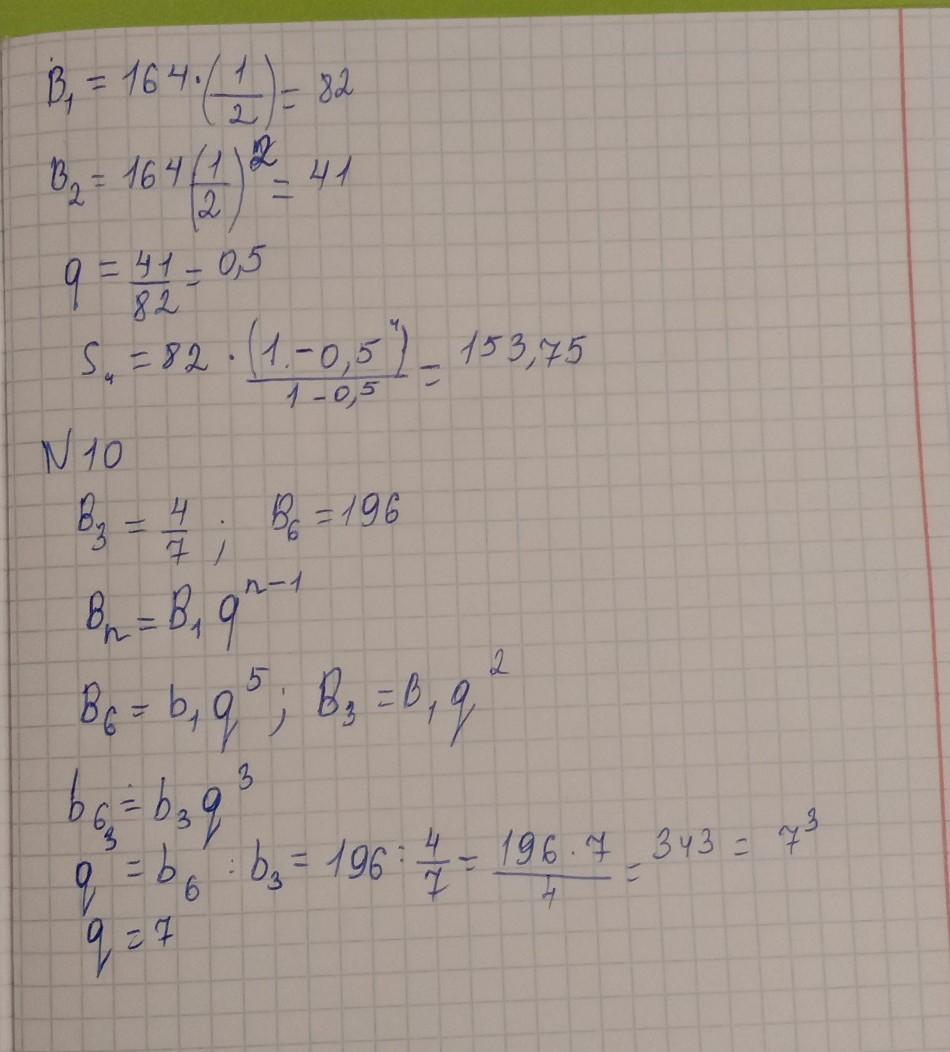 B₁ = 164 · (1/2) = 82
B₂ = 164 (1/2)² = 41
q = 41/82 = 0,5
S₄ = 82 · (1 - 0,5⁴)/(1 - 0,5) = 153,75
N 10
B₃ = 4/7 ; B₆ = 196
Bₙ = B₁ qⁿ⁻¹
B₆ = b₁ q⁵ ; B₃ = B₁ q²
b₆ = b₃ q³
q³ = b₆ : b₃ = 196 : 4/7 = 196 · 7/4 = 343 = 7³
q = 7